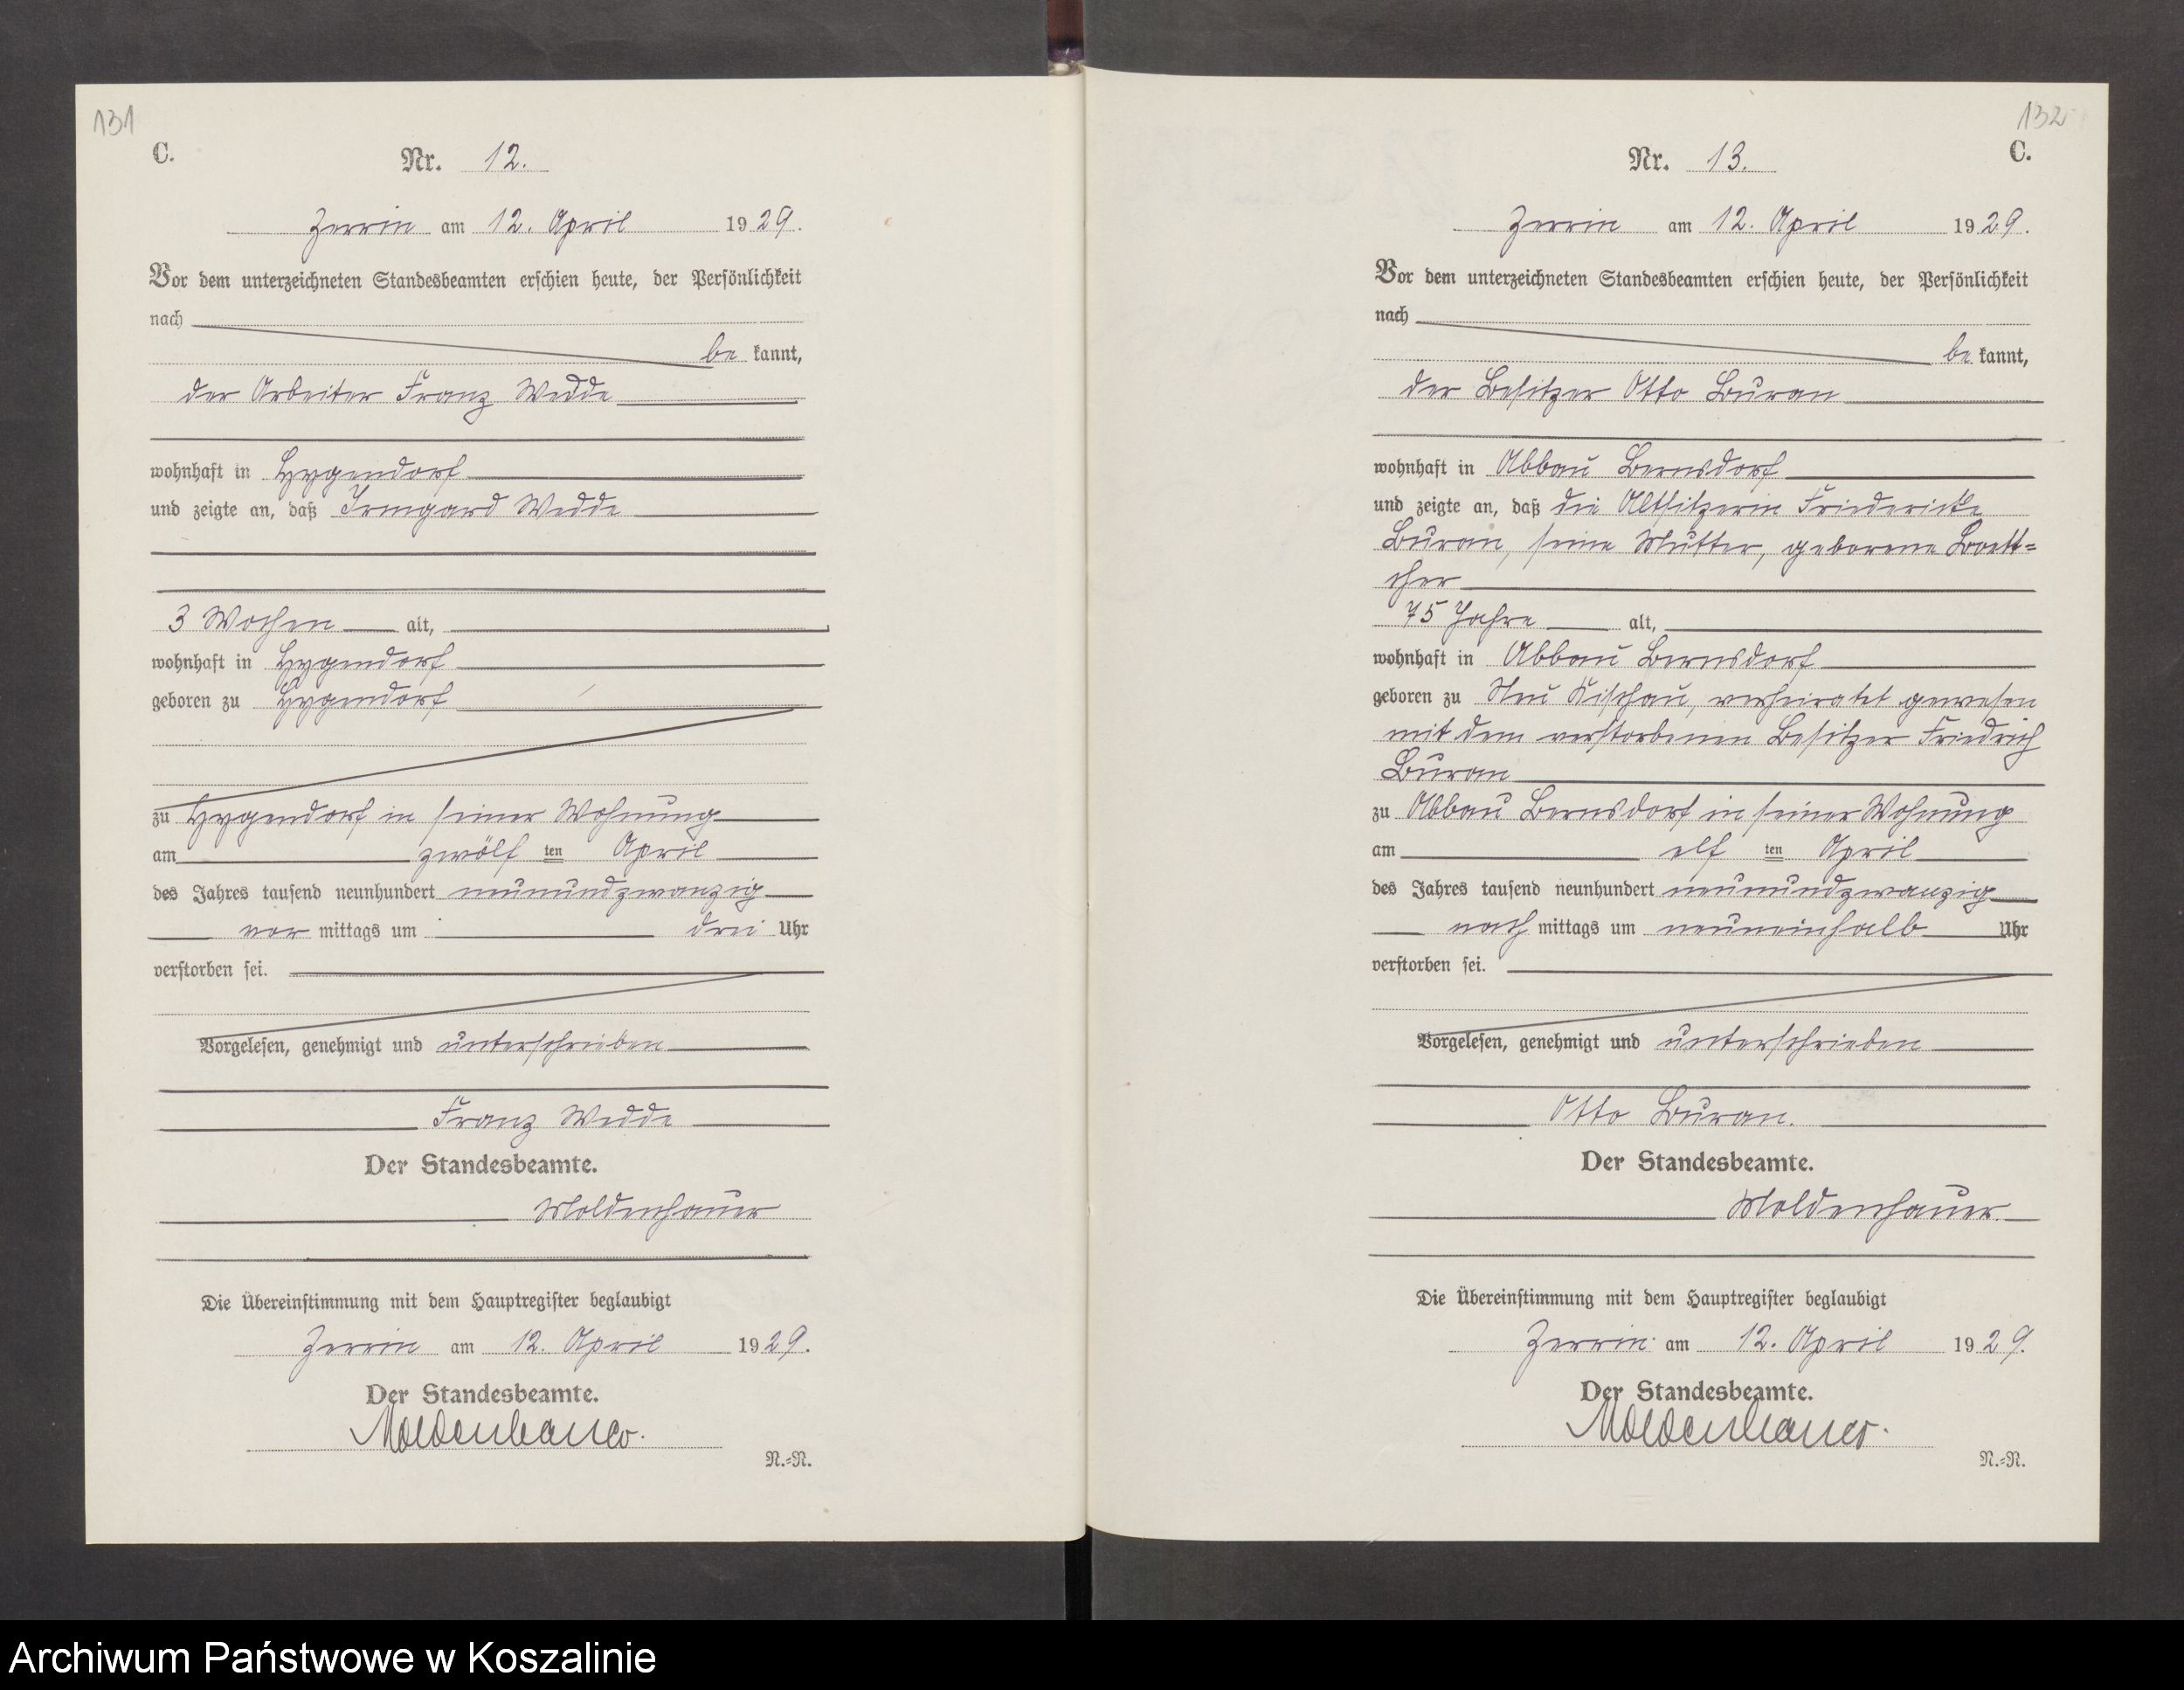 131
C.
Nr. 12.
Zerrin am 12. April 1929.
Vor dem unterzeichneten Standesbeamten erschien heute, der Persönlichkeit
nach
be kannt,
der Arbeiter Franz Wedde
wohnhaft in Hygendorf
und zeigte an, daß Irmgard Wedde
3 Wochen alt,
wohnhaft in Hygendorf
geboren zu Hygendorf
zu Hygendorf in seiner Wohnung
am zwölf ten April
des Jahres tausend neunhundert neunundzwanzig
vor mittags um drei Uhr
verstorben sei.
Vorgelesen, genehmigt und unterschrieben
Franz Wedde
Der Standesbeamte.
Moldenhauer
Die Übereinstimmung mit dem Hauptregister beglaubigt
Zerrin am 12. April 1929.
Der Standesbeamte.
Moldenhauer.
N.=N.
132
Nr. 13. C.
Zerrin am 12. April 1929.
Vor dem unterzeichneten Standesbeamten erschien heute, der Persönlichkeit
nach
be kannt,
der Besitzer Otto Buran
wohnhaft in Abbau Bernsdorf
und zeigte an, daß die Altsitzerin Friedericke
Buran, seine Mutter, geborene Boett=
cher
75 Jahre alt,
wohnhaft in Abbau Bernsdorf
geboren zu Neu Kischau, verheiratet gewesen
mit dem verstorbenen Besitzer Friedrich
Buran
zu Abbau Bernsdorf in seiner Wohnung
am elf ten April
des Jahres tausend neunhundert neunundzwanzig
nach mittags um neuneinhalb Uhr
verstorben sei.
Vorgelesen, genehmigt und unterschrieben
Otto Buran.
Der Standesbeamte.
Moldenhauer.
Die Übereinstimmung mit dem Hauptregister beglaubigt
Zerrin am 12. April 1929.
Der Standesbeamte.
Moldenhauer.
N.=N.
Archiwum Państwowe w Koszalinie